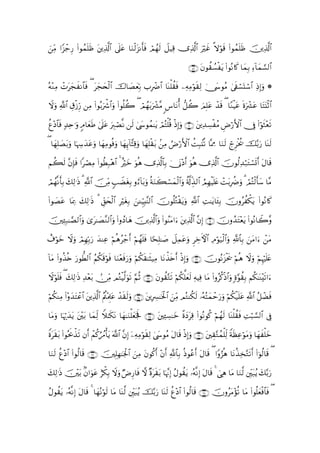 فَبَدَّلَ ٱلَّذِينَ ظَلَمُوا۟ قَوْلًا غَيْرَ ٱلَّذِى قِيلَ لَهُمْ فَأَنزَلْنَا عَلَى ٱلَّذِينَ ظَلَمُوا۟ رِجْزًا مِّنَ
ٱلسَّمَآءِ بِمَا كَانُوا۟ يَفْسُقُونَ
۞ وَإِذِ ٱسْتَسْقَىٰ مُوسَىٰ لِقَوْمِهِۦ فَقُلْنَا ٱضْرِب بِّعَصَاكَ ٱلْحَجَرَ ۖ فَٱنفَجَرَتْ مِنْهُ
ٱثْنَتَا عَشْرَةَ عَيْنًا ۖ قَدْ عَلِمَ كُلُّ أُنَاسٍ مَّشْرَبَهُمْ ۖ كُلُوا۟ وَٱشْرَبُوا۟ مِن رِّزْقِ ٱللَّهِ وَلَا
تَعْثَوْا۟ فِى ٱلْأَرْضِ مُفْسِدِينَ وَإِذْ قُلْتُمْ يَـٰمُوسَىٰ لَن نَّصْبِرَ عَلَىٰ طَعَامٍ وَٰحِدٍ فَٱدْعُ
لَنَا رَبَّكَ يُخْرِجْ لَنَا مِمَّا تُنۢبِتُ ٱلْأَرْضُ مِنۢ بَقْلِهَا وَقِثَّآئِهَا وَفُومِهَا وَعَدَسِهَا وَبَصَلِهَا ۖ
قَالَ أَتَسْتَبْدِلُونَ ٱلَّذِى هُوَ أَدْنَىٰ بِٱلَّذِى هُوَ خَيْرٌ ۚ ٱهْبِطُوا۟ مِصْرًا فَإِنَّ لَكُم
مَّا سَأَلْتُمْ ۗ وَضُرِبَتْ عَلَيْهِمُ ٱلذِّلَّةُ وَٱلْمَسْكَنَةُ وَبَآءُو بِغَضَبٍ مِّنَ ٱللَّهِ ۗ ذَٰلِكَ بِأَنَّهُمْ
كَانُوا۟ يَكْفُرُونَ بِـَٔايَـٰتِ ٱللَّهِ وَيَقْتُلُونَ ٱلنَّبِيِّـۧنَ بِغَيْرِ ٱلْحَقِّ ۗ ذَٰلِكَ بِمَا عَصَوا۟
وَّكَانُوا۟ يَعْتَدُونَ إِنَّ ٱلَّذِينَ ءَامَنُوا۟ وَٱلَّذِينَ هَادُوا۟ وَٱلنَّصَـٰرَىٰ وَٱلصَّـٰبِـِٔينَ
مَنْ ءَامَنَ بِٱللَّهِ وَٱلْيَوْمِ ٱلْـَٔاخِرِ وَعَمِلَ صَـٰلِحًا فَلَهُمْ أَجْرُهُمْ عِندَ رَبِّهِمْ وَلَا خَوْفٌ
عَلَيْهِمْ وَلَا هُمْ يَحْزَنُونَ وَإِذْ أَخَذْنَا مِيثَـٰقَكُمْ وَرَفَعْنَا فَوْقَكُمُ ٱلطُّورَ خُذُوا۟ مَآ
ءَاتَيْنَـٰكُم بِقُوَّةٍ وَٱذْكُرُوا۟ مَا فِيهِ لَعَلَّكُمْ تَتَّقُونَ ثُمَّ تَوَلَّيْتُم مِّنۢ بَعْدِ ذَٰلِكَ ۖ فَلَوْلَا
فَضْلُ ٱللَّهِ عَلَيْكُمْ وَرَحْمَتُهُۥ لَكُنتُم مِّنَ ٱلْخَـٰسِرِينَ وَلَقَدْ عَلِمْتُمُ ٱلَّذِينَ ٱعْتَدَوْا۟ مِنكُمْ
فِى ٱلسَّبْتِ فَقُلْنَا لَهُمْ كُونُوا۟ قِرَدَةً خَـٰسِـِٔينَ فَجَعَلْنَـٰهَا نَكَـٰلًا لِّمَا بَيْنَ يَدَيْهَا وَمَا
خَلْفَهَا وَمَوْعِظَةً لِّلْمُتَّقِينَ وَإِذْ قَالَ مُوسَىٰ لِقَوْمِهِۦٓ إِنَّ ٱللَّهَ يَأْمُرُكُمْ أَن تَذْبَحُوا۟ بَقَرَةً
ۖ قَالُوٓا۟ أَتَتَّخِذُنَا هُزُوًا ۖ قَالَ أَعُوذُ بِٱللَّهِ أَنْ أَكُونَ مِنَ ٱلْجَـٰهِلِينَ قَالُوا۟ ٱدْعُ لَنَا
رَبَّكَ يُبَيِّن لَّنَا مَا هِىَ ۚ قَالَ إِنَّهُۥ يَقُولُ إِنَّهَا بَقَرَةٌ لَّا فَارِضٌ وَلَا بِكْرٌ عَوَانٌۢ بَيْنَ ذَٰلِكَ
ۖ فَٱفْعَلُوا۟ مَا تُؤْمَرُونَ قَالُوا۟ ٱدْعُ لَنَا رَبَّكَ يُبَيِّن لَّنَا مَا لَوْنُهَا ۚ قَالَ إِنَّهُۥ يَقُولُ